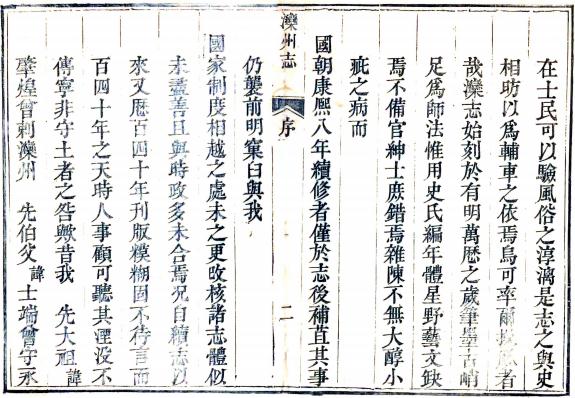 在士民可以驗風俗之淳漓是志之與史
相昉以爲輔車之依焉烏可率爾操觚者
哉灤志始刻於有明萬歷之歲筆墨古峭
足爲師法惟用史氏編年體星野藝文缺
焉不備官紳士庶錯焉雜陳不無大醇小
疵之病而
國朝康熙八年續修者僅於志後補苴其事
灤州志 序 二
仍襲前明窠臼與我
國家制度相越之處未之更改核諸志體似
未盡善且與時政多未合焉况自續志以
來又歷百四十年刊版模糊固不待言而
百四十年之天時人事顧可聽其湮没不
傳寧非守土者之咎歟昔我 先大祖諱
肇煌曾刺灤州 先伯父諱士端曾守永